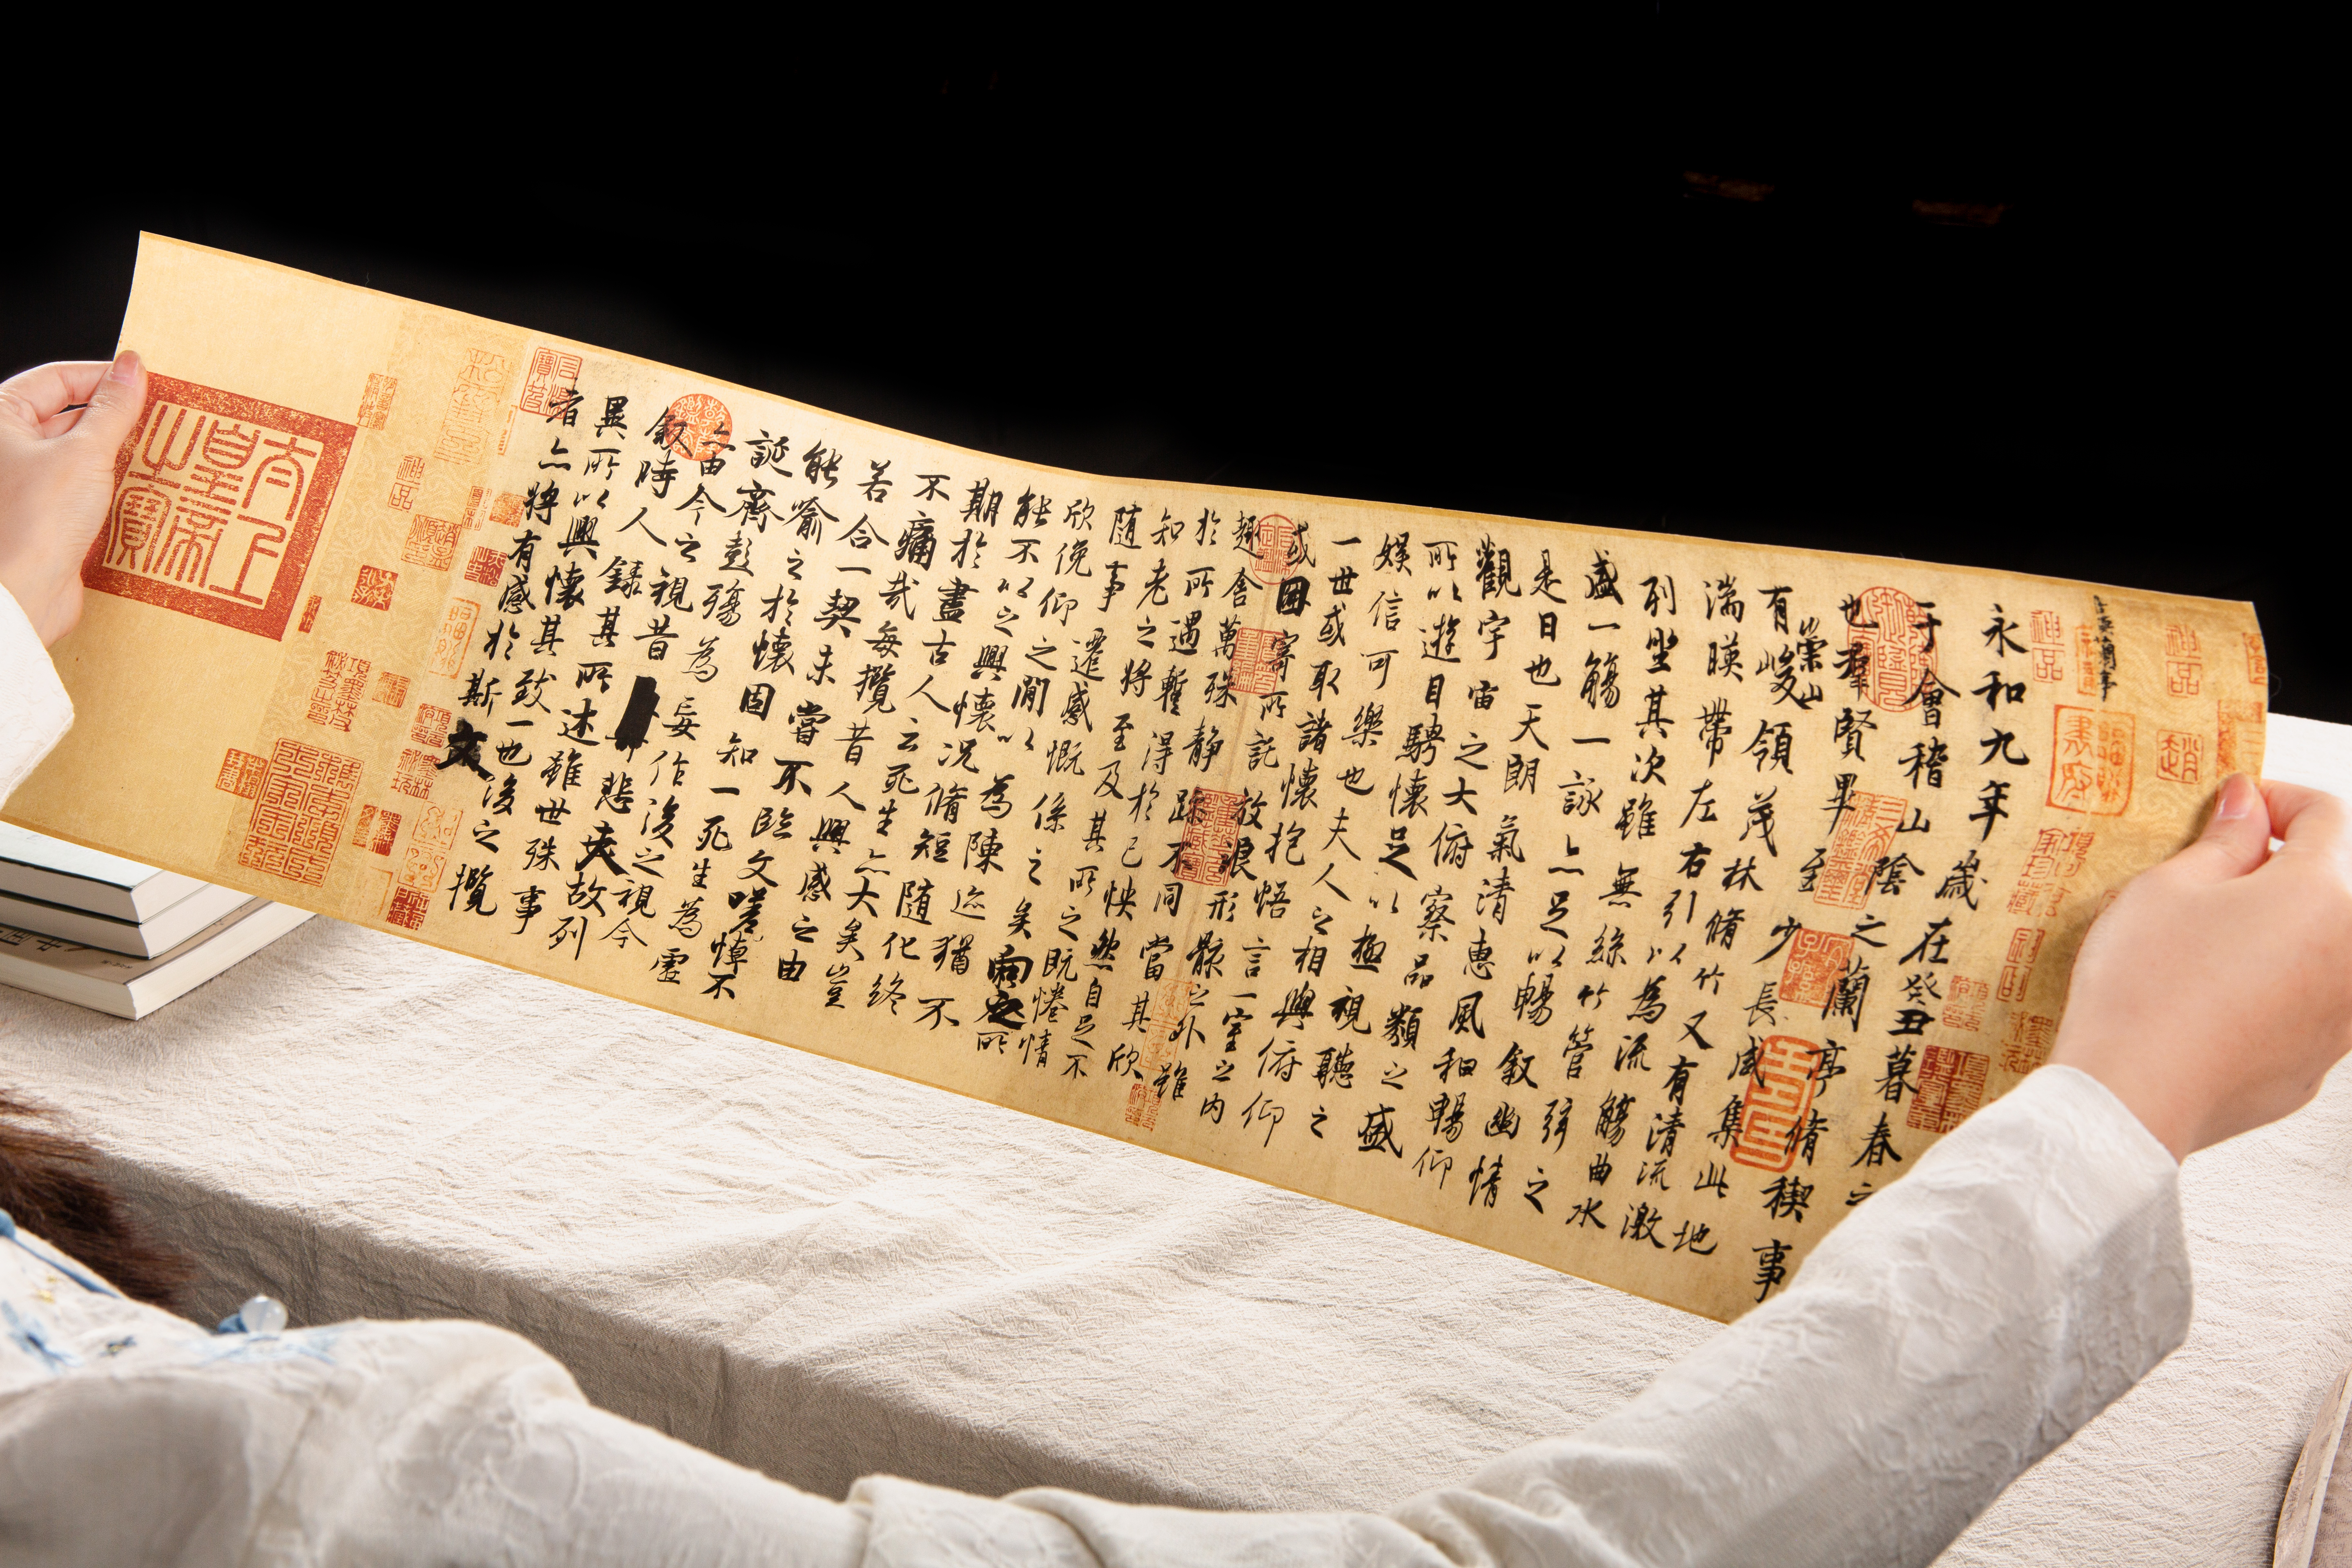 永和九年歲在癸丑暮春之
于會稽山陰之蘭亭脩禊事
也群賢畢至少長咸集此地
有崇山峻領茂林脩竹又有清流激
湍暎帶左右引以為流觴曲水
列坐其次雖無絲竹管弦之
盛一觴一詠亦足以暢敘幽情
是日也天朗氣清惠風和暢仰
觀宇宙之大俯察品類之盛
所以遊目騁懷足以極視聽之
娛信可樂也夫人之相與俯仰
一世或取諸懷抱悟言一室之內
或因寄所託放浪形骸之外雖
趣舍萬殊靜躁不同當其欣
於所遇暫得於己怏然自足不
知老之將至及其所之既惓情
隨事遷感慨係之矣向之所
欣俛仰之閒以為陳迹猶不
能不以之興懷況脩短隨化終
期於盡古人云死生亦大矣豈
不痛哉每攬昔人興感之由
若合一契未嘗不臨文嗟悼不
能喻之於懷固知一死生為虛
誕齊彭殤為妄作後之視今
亦由今之視昔悲夫故列
敘時人錄其所述雖世殊事
異所以興懷其致一也後之攬
者亦將有感於斯文
太上皇帝之寶